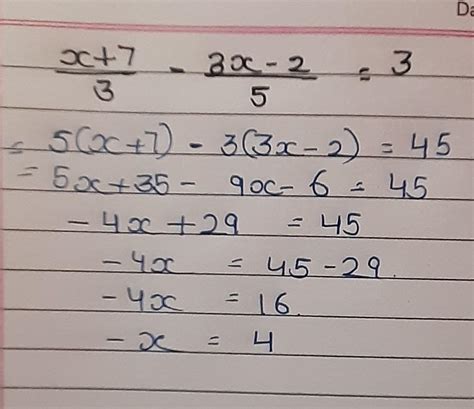 Da
x+7/3 - 3x-2/5 = 3
= 5(x+7) - 3(3x-2) = 45
= 5x+35 - 9x-6 = 45
-4x+29 = 45
-4x = 45-29.
-4x = 16.
-x = 4